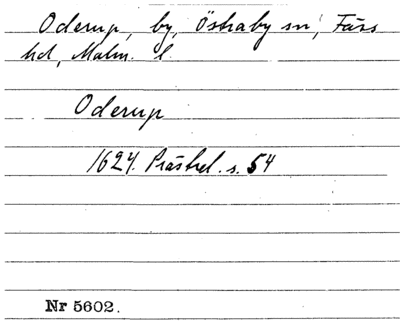 Oderup, by, Östraby sn, Färs
hd, Malm. l.
Oderup
1624. Prästrel. s. 54
Nr 5602.